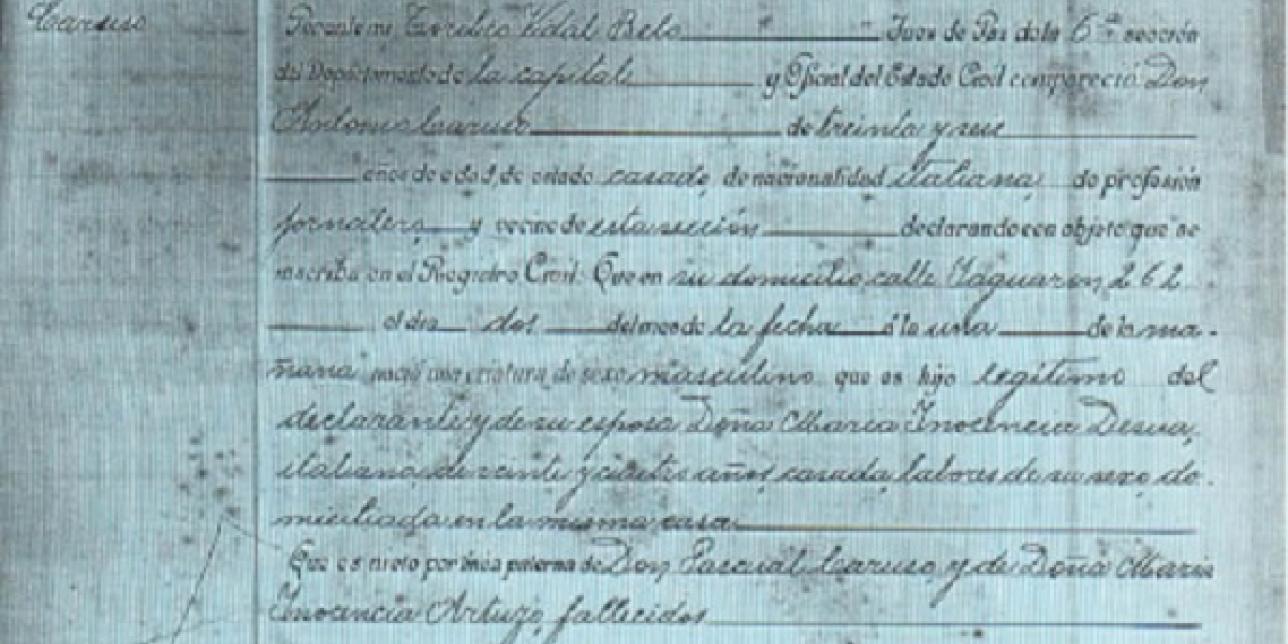 Caruso
Por ante mi, Toribio Vidal Belo Juez de Paz de la 6ª sección
del Departamento de la capital y Oficial del Estado Civil compareció: Don
Antonio Caruso de treinta y seis
años de edad, de estado casado, de nacionalidad italiana, de profesión
jornalero y vecino de esta sección declarando con objeto que se
inscriba en el Registro Civil: Que en su domicilio calle Yaguaron 262
el dia dos del mes de la fecha á la una de la ma-
ñana nació una criatura de sexo masculino que es hijo legítimo del
declarante y de su esposa Doña Maria Inocencia
italiana, de veinte y años, casada, labores de su sexo, do-
miciliada en la misma casa
Que es nieto por línea paterna de Don Pascual Caruso y de Doña Maria
Inocencia Arturo, fallecidos